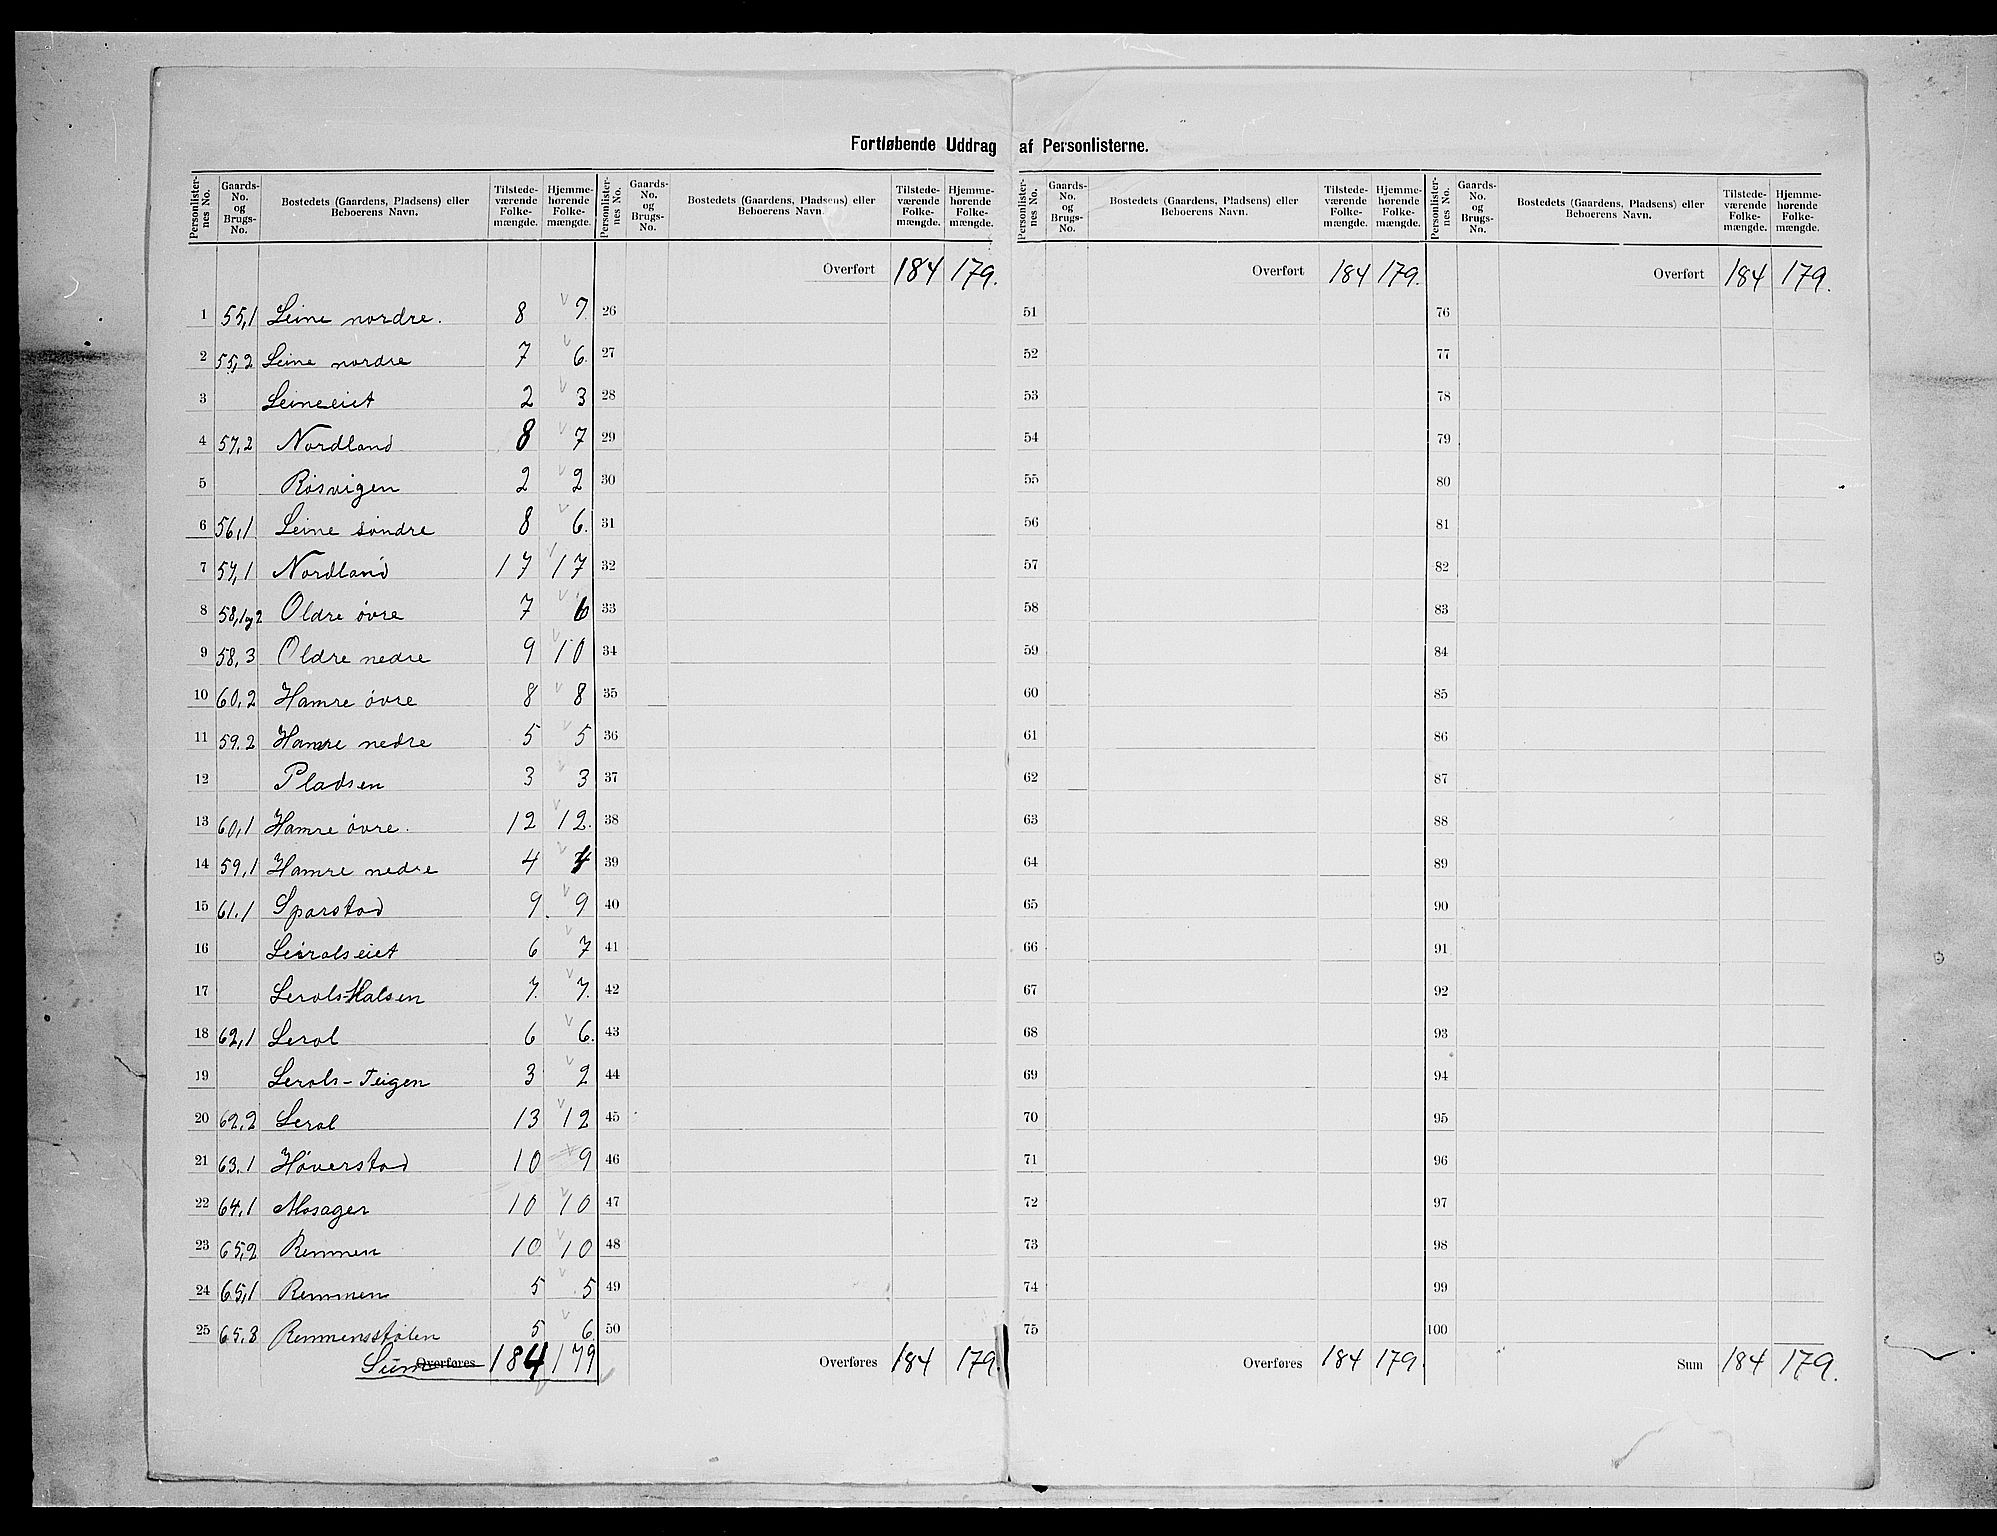 Fortløbende Uddrag af Personlisterne.
Personlisternes No. | Gaards-No. og Brugs-No. | Bostedets (Gaardens, Pladsens) eller Beboerens Navn. | Tilstedeværende Folkemængde. | Hjemmehørende Folkemængde. | Personlisternes No. | Gaards-No. og Brugs-No. | Bostedets (Gaardens, Pladsens) eller Beboerens Navn. | Tilstedeværende Folkemængde. | Hjemmehørende Folkemængde. | Personlisternes No. | Gaards-No. og Brugs-No. | Bostedets (Gaardens, Pladsens) eller Beboerens Navn. | Tilstedeværende Folkemængde. | Hjemmehørende Folkemængde. | Personlisternes No. | Gaards-No. og Brugs-No. | Bostedets (Gaardens, Pladsens) eller Beboerens Navn. | Tilstedeværende Folkemængde. | Hjemmehørende Folkemængde.
Overført 184 179. Overført 184 179. Overført 184 179.
1 55,1 Leine nordre. 8 7. 26 51 76
2 55,2 Leine nordre 7 6. 27 52 77
3 Leineeiet 2 3 28 53 78
4 57,2 Nordland 8 7 29 54 79
5 Røsvigen 2 2 30 55 80
6 56,1 Leine søndre 8 6. 31 56 81
7 57,1 Nordland 17 17 32 57 82
8 58,1og2 Oldre øvre 7 6 33 58 83
9 58,3 Oldre nedre 9 10 34 59 84
10 60,2 Hamre øvre 8 8 35 60 85
11 59.2 Hamre nedre 5 5 36 61 86
12 Pladsen 3 3 37 62 87
13 60,1 Hamre øvre. 12 12. 38 63 88
14 59,1 Hamre nedre 4 4 39 64 89
15 61.1 Sparstad 9. 9 40 65 90
16 Leirolseiet 6 7 41 66 91
17 Lerols-Halsen 7. 7. 42 67 92
18 62,1 Lerol 6 6. 43 68 93
19 Lerols-Teigen 3 2 44 69 94
20 62,2 Lerol 13 12 45 70 95
21 63.1 Høverstad 10 9 46 71 96
22 64,1 Mosager 10 10 47 72 97
23 65,2 Remmen 10 10 48 73 98
24 65,1 Remmen 5 5 49 74 99
25 65,3 Remmensstølen 5 6. 50 75 100
Overføres Sum 184 179 Overføres 184 179. Overføres 184 179. Sum 184 179.